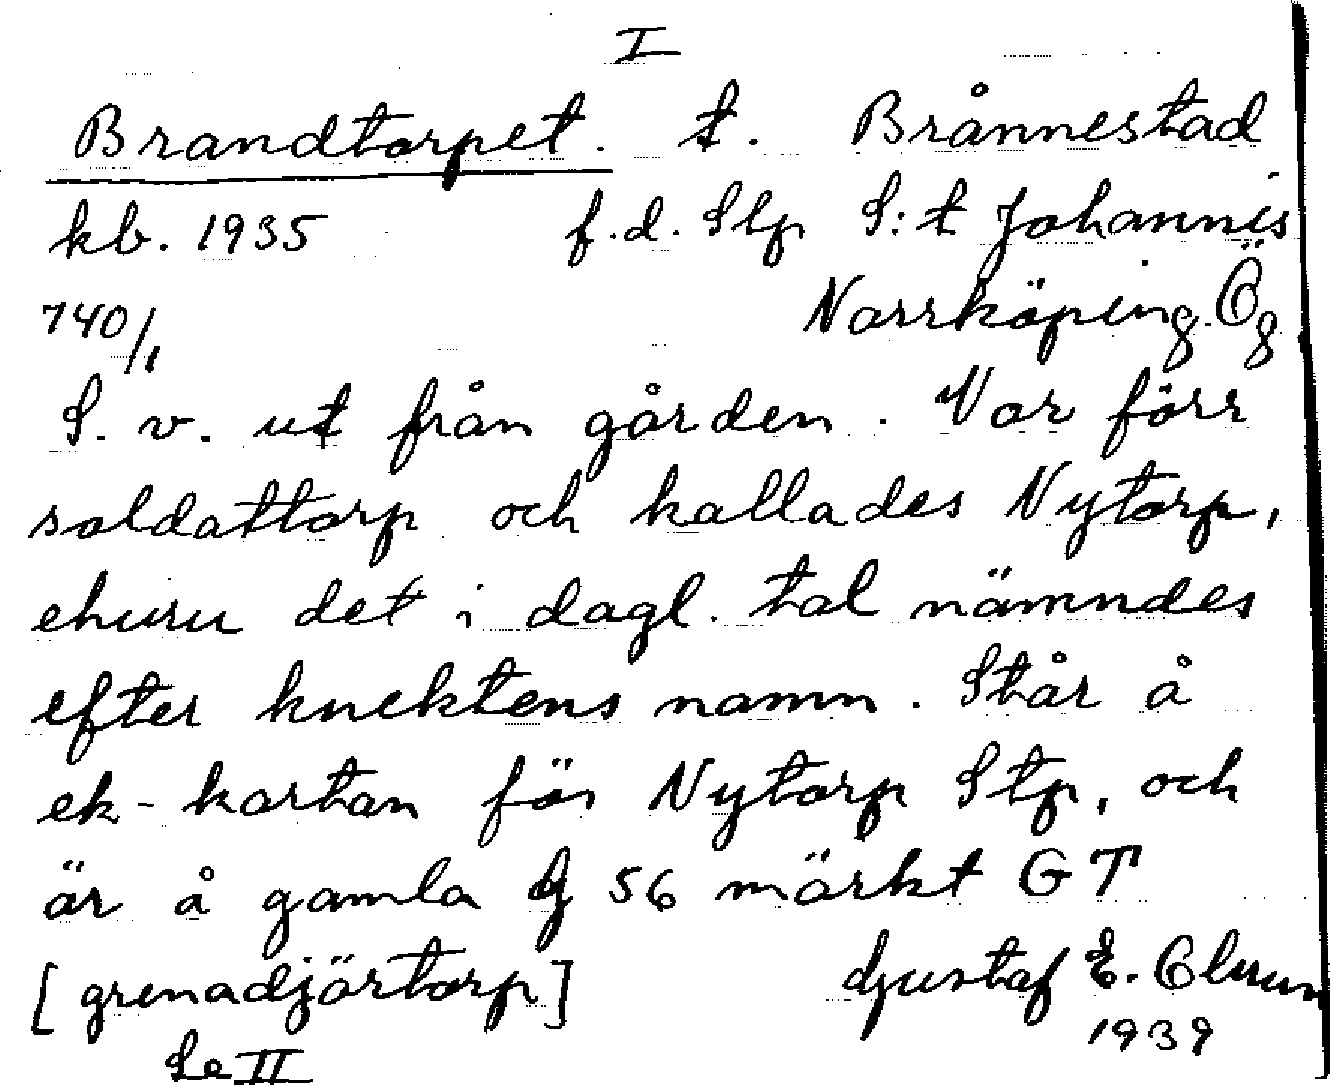 I
Brandtorpet. t. Brånnestad
kb. 1935 f.d. Slp S:t Johannis
740/1 Norrköping. Ög
S. v. ut från gården. Var förr
soldattorp och kallades Nytorp,
ehuru det i dagl. tal nämndes
efter knektens namn. Står å
ek-kartan för Nytorp Stp, och
är å gamla G 56 märkt GT
[grenadjörtorp] Gustaf E.
1939
Se II